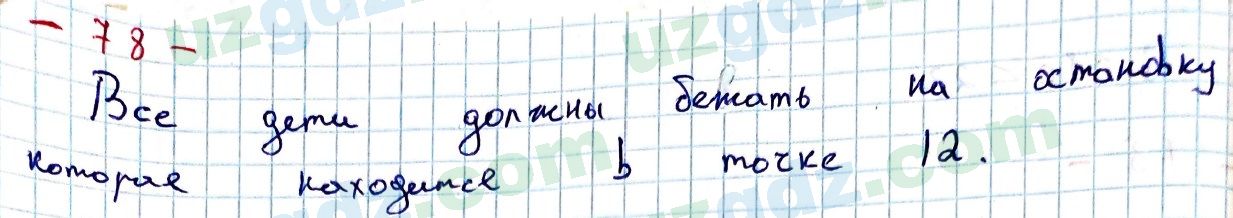 - 78 -
Все дети должны бежать на остановку
которая находится в точке 12.
uzgdz.com